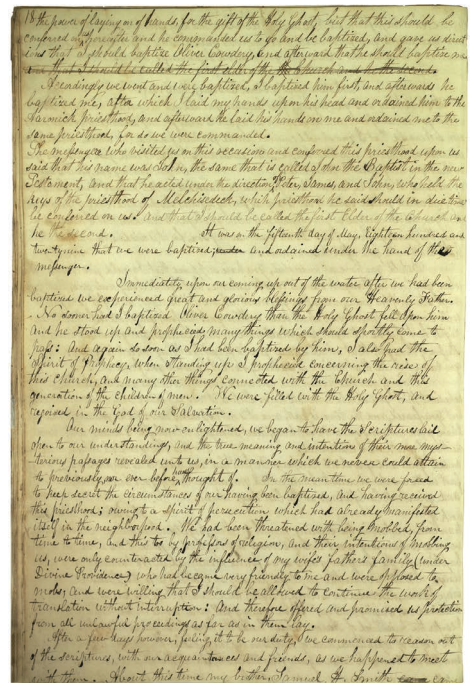 18 the power of laying on of hands, for the gift of the Holy Ghost, but that this should be
conferred on us hereafter and he commanded us to go and be baptized, and gave us direct
ions that I should baptize Oliver Cowdery, and afterward that he should baptize me
and that I should be called the first elder of the Church and he the second.
Accordingly we went and were baptized, I baptized him first, and afterwards he
baptized me, after which I laid my hands upon his head and ordained him to the
Aaronick priesthood, and afterward he laid his hands on me and ordained me to the
same priesthood, for so we were commanded.
The messenger who visited us on this occasion and conferred this priesthood upon us
said that his name was John, the same that is called John the Baptist in the new
Testament, and that he acted under the direction Peter, James, and John, who held the
keys of the priesthood of Melchisedeck, which priesthood he said should in due time
be conferred on us. and that I should be called the first Elder of the Church and
he the second. It was on the fifteenth day of May, Eighteen hundred and
twentynine that we were baptized; under and ordained under the hand of the
messenger.
Immediately upon our coming up out of the water after we had been
baptized we experienced great and glorious blessings from our Heavenly Father.
No sooner had I baptized Oliver Cowdery than the Holy Ghost fell upon him
and he stood up and prophecied many things which should shortly come to
pass: And again so soon as I had been baptized by him, I also had the
Spirit of Prophecy, when standing up I prophecied concerning the rise of
this Church, and many other things connected with the Church and this
generation of the children of men. We were filled with the Holy Ghost, and
rejoiced in the God of our Salvation.
Our minds being now enlightened, we began to have the Scriptures laid
open to our understandings, and the true meaning and intention of their more myst-
terious passages revealed unto us, in a manner which we never could attain
to previously, nor ever before had thought of. In the mean time we were forced
to keep secret the circumstances of our having been baptized, and having received
this priesthood; owing to a spirit of persecution which had already manifested
itself in the neighborhood. We had been threatened with being mobbed, from
time to time, and this too by professors of religion, and their intentions of mobbing
us, were only counteracted by the influence of my wife's father's family (under
Divine Providence) who had became very friendly to me and were opposed to
mobs; and were willing that I should be allowed to continue the work of
translation without interruption: And therefore offered and promised us protection
from all unlawful proceedings as far as in them lay.
After a few days however, feeling it to be our duty, we commenced to reason out
of the scriptures, with our acquaintances and friends, as we happened to meet
with them. About this time my brother Samuel H. Smith came